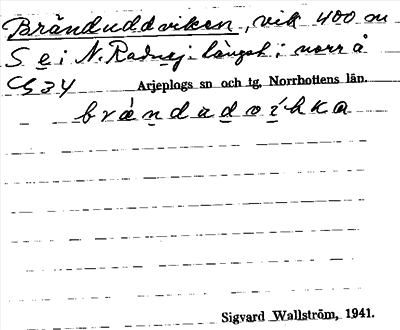 Bränduddviken, vik 400 m
S e i N. Radnej. längst i norr å
CS34 Arjeplogs sn och tg, Norrbottens län.
brándadoíhka
Sigvard Wallström, 1941.